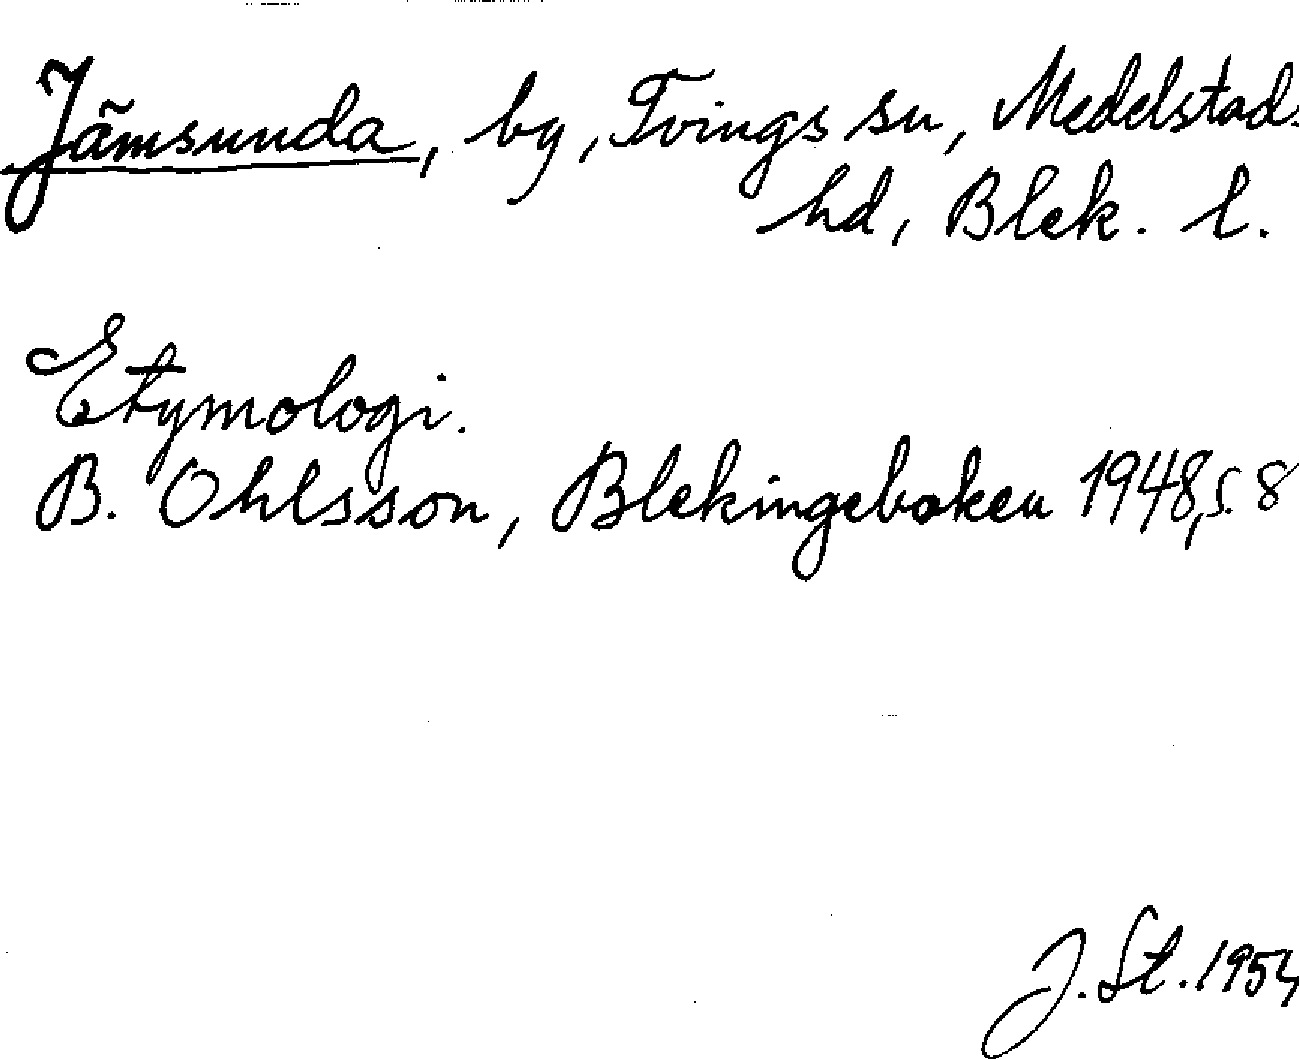 Jämsunda, by, Tvings sn, Medelstads
hd, Blek. l.
Etymologi.
B. Ohlsson, Blekingeboken 1948, s. 8
J. St. 1954